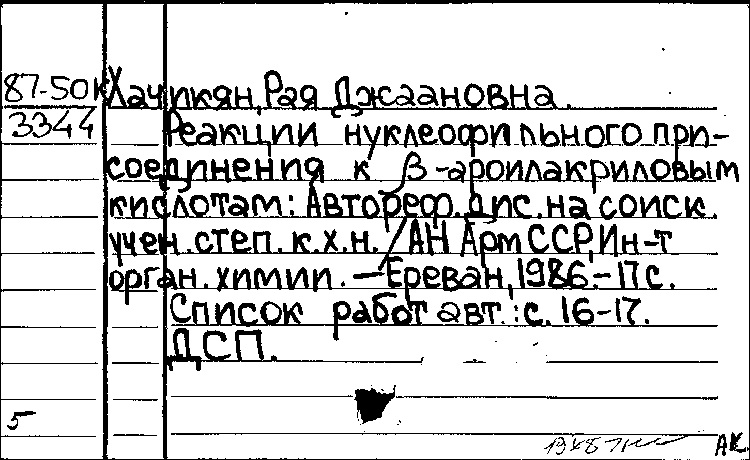 87-50к Хачикян, Рая Джаановна.
3344 Реакции нуклеофильного при-
соединения к β-ароилакриловым
кислотам: Автореф. дис. на соиск.
учен. степ. к.х.н. / АН АрмССР, Ин-т
орган. химии. — Ереван, 1986. - 17 с.
Список работ авт.: с. 16-17.
ДСП.
5
АК